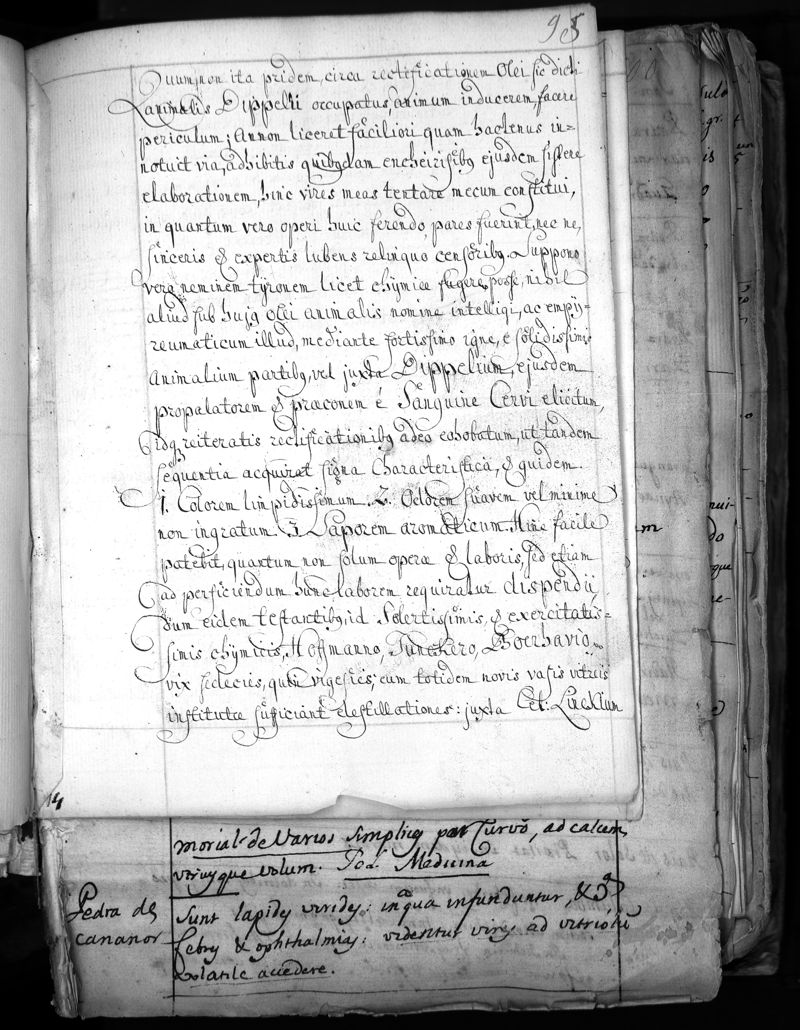 95
Quum, non ita pridem, circa rectificationem Olei sic dicti
animalis Dippelii occupatus, animum inducerem, facere
periculum; Annon liceret faciliori quam hactenus in=
notuit via, adhibitis quibqdam encheirisibq ejusdem sistere
elaborationem, hinc vires meas tentare mecum constitui,
in quantum vero operi huic ferendo, pares fuerint, nec ne,
sinceris & expertis lubens relinquo censoribq. Suppono
vero neminem tyronem licet chymice fugere posse, nihil
aliud sub hujq olei animalis nomine intelligi, ac empÿ=
reumaticum illud, mediante fortissimo igne, e solidissimis
Animalium partibq, vel juxta Dippelium, ejusdem
propalatorem & præconem é Sanguine Cervi elicitum,
idq reiteratis rectificationibq adeo cohobatum, ut tandem
sequentia acquirat signa Characteristica, & quidem.
1. Colorem limpidissimum. 2. Odorem suavem vel minime
non ingratum. 3. Saporem aromaticum. Hinc facile
patebit, quantum non solum operæ & laboris, sed etiam
ad perficiendum hunc laborem requiratur dispendii
dum eidem testantibq, id Solertissimis, & exercitatis=
simis chymicis, Hoffmanno, Junckero, Boerhavio,
vix sedecies, quin vigesies, cum totidem novis vasis vitreis
institutæ sufficiant destillationes: juxta Cel: Linckium
morial de Varios simplicq par Curvõ, ad calcem
utriusque volum. Pol. Medicina
Pedra de
cananor
Sunt lapides virides: in aqua infunduntur, &
febry & ophthalmiis: videntur vires ad vitrioli
volatile accedere.